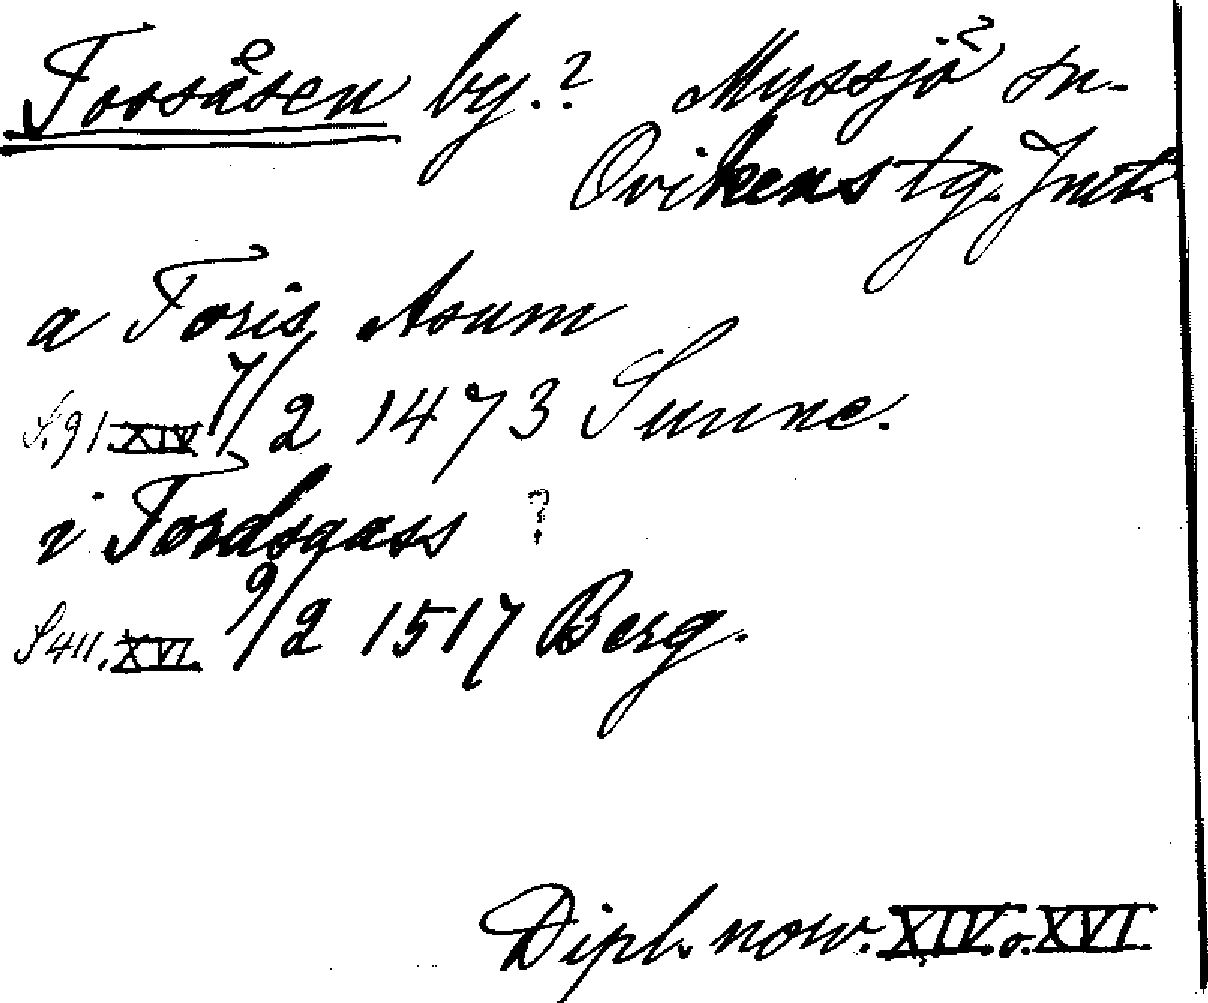 Torsåsen by.? Myssjö? sn.
Ovikens tg. Jmt.
a Toris Asum
S. 91 XIV 7/2 1473 Sunne.
i Tordsaass ?
S 411. XVI. 9/2 1517 Berg.
Dipl. norv. XIV. o. XVI.